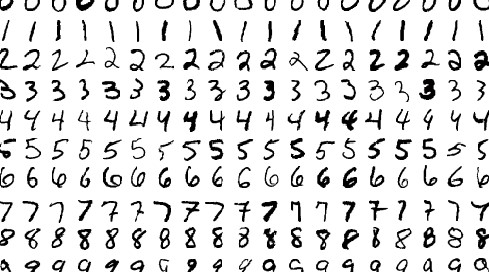 0 0 0 0 0 0 0 0 0 0 0 0 0 0 0 0 0 0 0
1 1 1 1 1 1 1 1 1 1 1 1 1 1 1 1 1 1 1
2 2 2 2 2 2 2 2 2 2 2 2 2 2 2 2 2 2 2
3 3 3 3 3 3 3 3 3 3 3 3 3 3 3 3 3 3 3
4 4 4 4 4 4 4 4 4 4 4 4 4 4 4 4 4 4 4
5 5 5 5 5 5 5 5 5 5 5 5 5 5 5 5 5 5 5
6 6 6 6 6 6 6 6 6 6 6 6 6 6 6 6 6 6 6
7 7 7 7 7 7 7 7 7 7 7 7 7 7 7 7 7 7 7
8 8 8 8 8 8 8 8 8 8 8 8 8 8 8 8 8 8 8
9 9 9 9 9 9 9 9 9 9 9 9 9 9 9 9 9 9 9